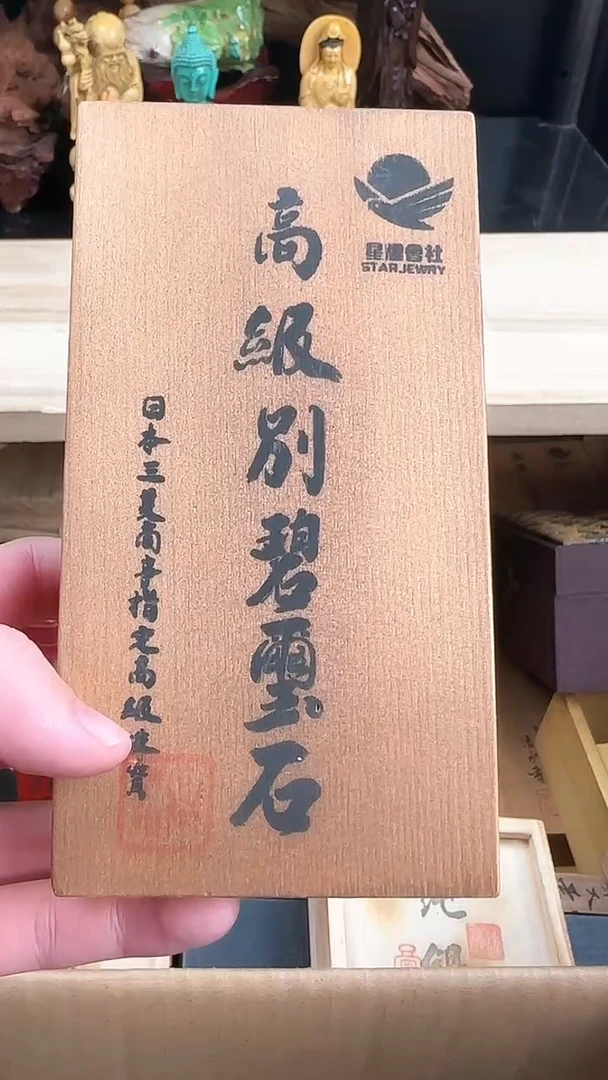 星輝會社
STARJEWRY
高級別碧璽石
日本三見商事指定高級珠寶